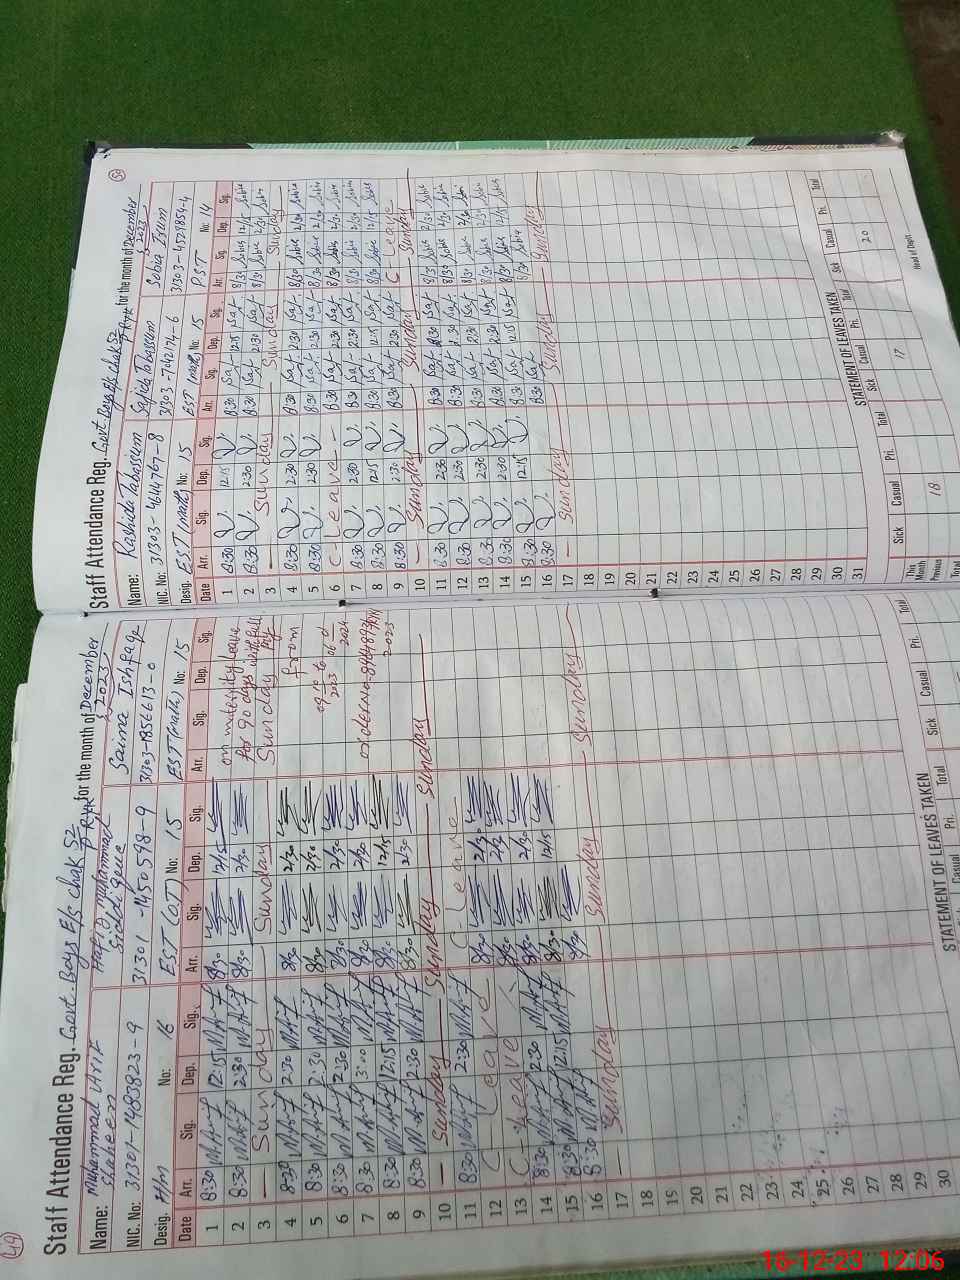 49
Staff Attendance Reg. Govt. Boys E/S chak 52 P RYK for the month of December 2023
Name: Muhammad Arif Shaheen
Hafiz Muhammad Siddique
Saima Ishfaq
NIC. No: 31301-1483823-9
31301-1450598-9
31303-1856613-0
Desig. H/M No: 16
EST (OT) No: 15
EST (math) No: 15
Date Arr. Sig. Dep. Sig. Arr. Sig. Dep. Sig. Arr. Sig. Dep. Sig.
1 8:30 M.Arif 12:15 M.Arif 8/30 12/15 on maternity leave
2 8:30 M.Arif 2:30 M.Arif 8/30 2/30 for 90 days with full pay
3 Sunday Sunday Sunday from
4 8:30 M.Arif 2:30 M.Arif 8/30 2/30
5 8:30 M.Arif 2:30 M.Arif 8/30 2/30
6 8:30 M.Arif 2:30 M.Arif 8/30 2/30
7 8:30 M.Arif 3:00 M.Arif 8/30 2/30
8 8:30 M.Arif 12:15 M.Arif 8/30 12/15
9 8:30 M.Arif 2:30 M.Arif 8/30 2/30
10 Sunday Sunday Sunday
11 8:30 M.Arif 2:30 M.Arif C Leave
12 C Leave 8/30 2/30
13 C Leave 8/30
14 8:30 M.Arif 2:30 M.Arif 8/30 2/30
15 8:30 M.Arif 12:15 M.Arif 8/30 12/15
16 8:30 M.Arif 8/30
17 Sunday Sunday Sunday
18
19
20
21
22
23
24
25
26
27
28
29
30
STATEMENT OF LEAVES TAKEN
Sick Casual Pri. Total
50
Staff Attendance Reg. Govt Boys E/S chak 52 P RYK for the month of December 2023
Name: Rashida Tabassum
Safida Tabassum
Sobia Izum
NIC. No: 31303-4644767-8
31303-7042174-6
31303-4529854-4
Desig. EST (math) No: 15
EST (math) No: 15
PST No: 14
Date Arr. Sig. Dep. Sig. Arr. Sig. Dep. Sig. Arr. Sig. Dep. Sig.
1 8:30 12:15 8:30 Saf 12:15 Saf 8/30 Sobia 12/15 Sobia
2 8:30 2:30 8:30 Saf 2:30 Saf 8/30 Sobia 2/30 Sobia
3 Sunday Sunday Sunday
4 8:30 2:30 8:30 Saf 2:30 Saf 8/30 Sobia 2/30 Sobia
5 8:30 2:30 8:30 Saf 2:30 Saf 8/30 Sobia 2/30 Sobia
6 C-Leave 8:30 Saf 2:30 Saf 8/30 Sobia 2/30 Sobia
7 8:30 2:30 8:30 Saf 2:30 Saf 8/30 Sobia 2/30 Sobia
8 8:30 12:15 8:30 Saf 12:15 Saf 8/30 Sobia 12/15 Sobia
9 8:30 2:30 8:30 Saf 2:30 Saf C Leave
10 Sunday Sunday Sunday
11 8:30 2:30 8:30 Saf 2:30 Saf 8/30 Sobia 2/30 Sobia
12 8:30 2:30 8:30 Saf 2:30 Saf 8/30 Sobia 2/30 Sobia
13 8:30 2:30 8:30 Saf 2:30 Saf 8/30 Sobia 2/30 Sobia
14 8:30 2:30 8:30 Saf 2:30 Saf 8/30 Sobia 2/30 Sobia
15 8:30 12:15 8:30 Saf 12:15 Saf 8/30 Sobia 12/15 Sobia
16 8:30 8:30 Saf 8/30 Sobia
17 Sunday Sunday Sunday
18
19
20
21
22
23
24
25
26
27
28
29
30
31
STATEMENT OF LEAVES TAKEN
Sick Casual Pri. Total Sick Casual Pri. Total Sick Casual Pri. Total
This Month 18 17 20
Previous
Total
Head of Deptt:
16-12-23 12:06